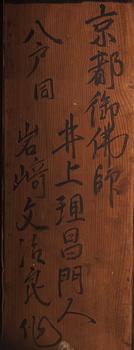 京都御佛師
井上理昌門人
八戸同
岩﨑文治良作